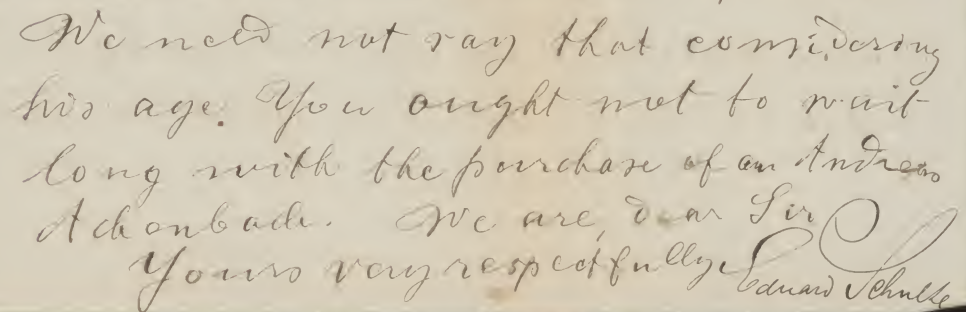 We need not say that considering
his age. You ought not to wait
long with the purchase of an Andreas
Achenbach. We are, dear Sir
Yours very respectfully Eduard Schulte